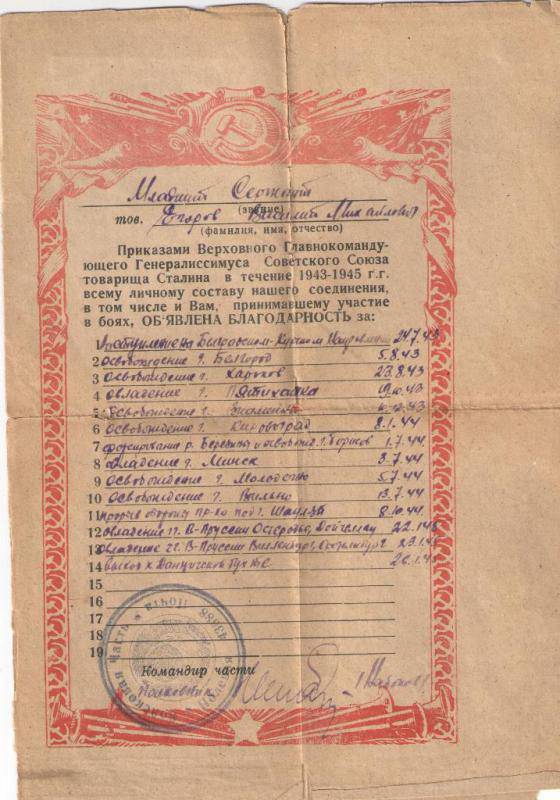 Младший Сержант
(звание)
тов. Егоров Василий Михайлович
(фамилия, имя, отчество)
Приказами Верховного Главнокоманду-
ющего Генералиссимуса Советского Союза
товарища Сталина в течение 1943-1945 г.г.
всему личному составу нашего соединения,
в том числе и Вам, принимавшему участие
в боях, ОБ'ЯВЛЕНА БЛАГОДАРНОСТЬ за:
1 24.7.43
2 Освобождение г. Белгород 5.8.43
3 Освобождение г. Харьков 23.8.43
4 Овладение г. Пятихатка 19.10.43
5 Освобождение г. Знаменка
6 Освобождение г. Кировоград 8.1.44
7 форсирование р. Березина и освобожд. г. Борисов 1.7.44
8 Овладение г. Минск 3.7.44
9 Освобождение г. Молодечно 5.7.44
10 Освобождение г. Вильно 13.7.44
11 прорыв обороны пр-ка под г. Шауляй 8.10.44
12 Овладение гг. В-Пруссии Остероде, 22.1.45
13 Овладение гг. В-Пруссии 23.1.45
14 выход к Данцигской бухте 26.1.45
15
16
17
18
19
Командир части
Полковник